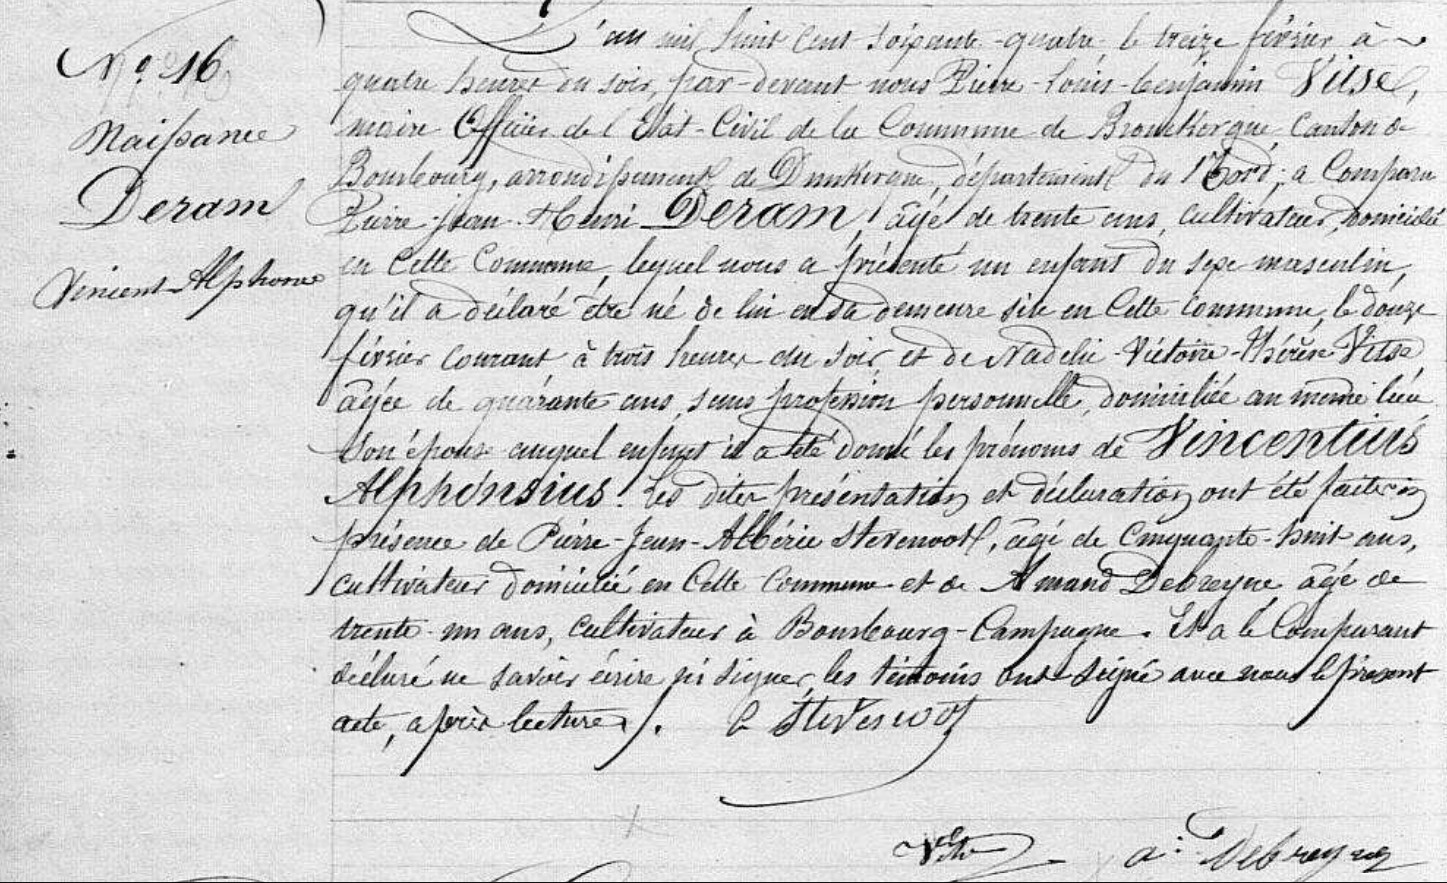 N.º 16
Naissance
Deram
Vincent-Alphonse
L'an mil huit cent soixante-quatre le treize février à
quatre heures du soir, par-devant nous Pierre-Louis-Benjamin Vitse,
maire Officier de l'Etat-Civil de la Commune de Brouckerque Canton de
Bourbourg, arrondissement de Dunkerque, département du Nord, a Comparu
Pierre-Jean-Henri Deram, âgé de trente ans, cultivateur, domicilié
en Cette Commune, lequel nous a présenté un enfant du sexe masculin,
qu'il a déclaré être né de lui en sa demeure sise en Cette Commune, le douze
février Courant à trois heures du soir, et de Victoire-Thérèse Vitse
âgée de quarante ans, sans profession personnelle, domiciliée au même lieu
Son épouse auquel enfant il a été donné les prénoms de Vincentius
Alphonsius. Les dites présentation et déclaration ont été faites en
présence de Pierre-Jean-Albéric Stevenoot, âgé de Cinquante-huit ans,
cultivateur domicilié en Cette Commune et de Amand Debreyne âgé de
trente-un ans, cultivateur à Bourbourg-Campagne. Et a le Comparant
déclaré ne savoir écrire ni signer, les témoins ont signé avec nous le présent
acte, après lecture.
Stevenoot
Vitse
a: Debreyne